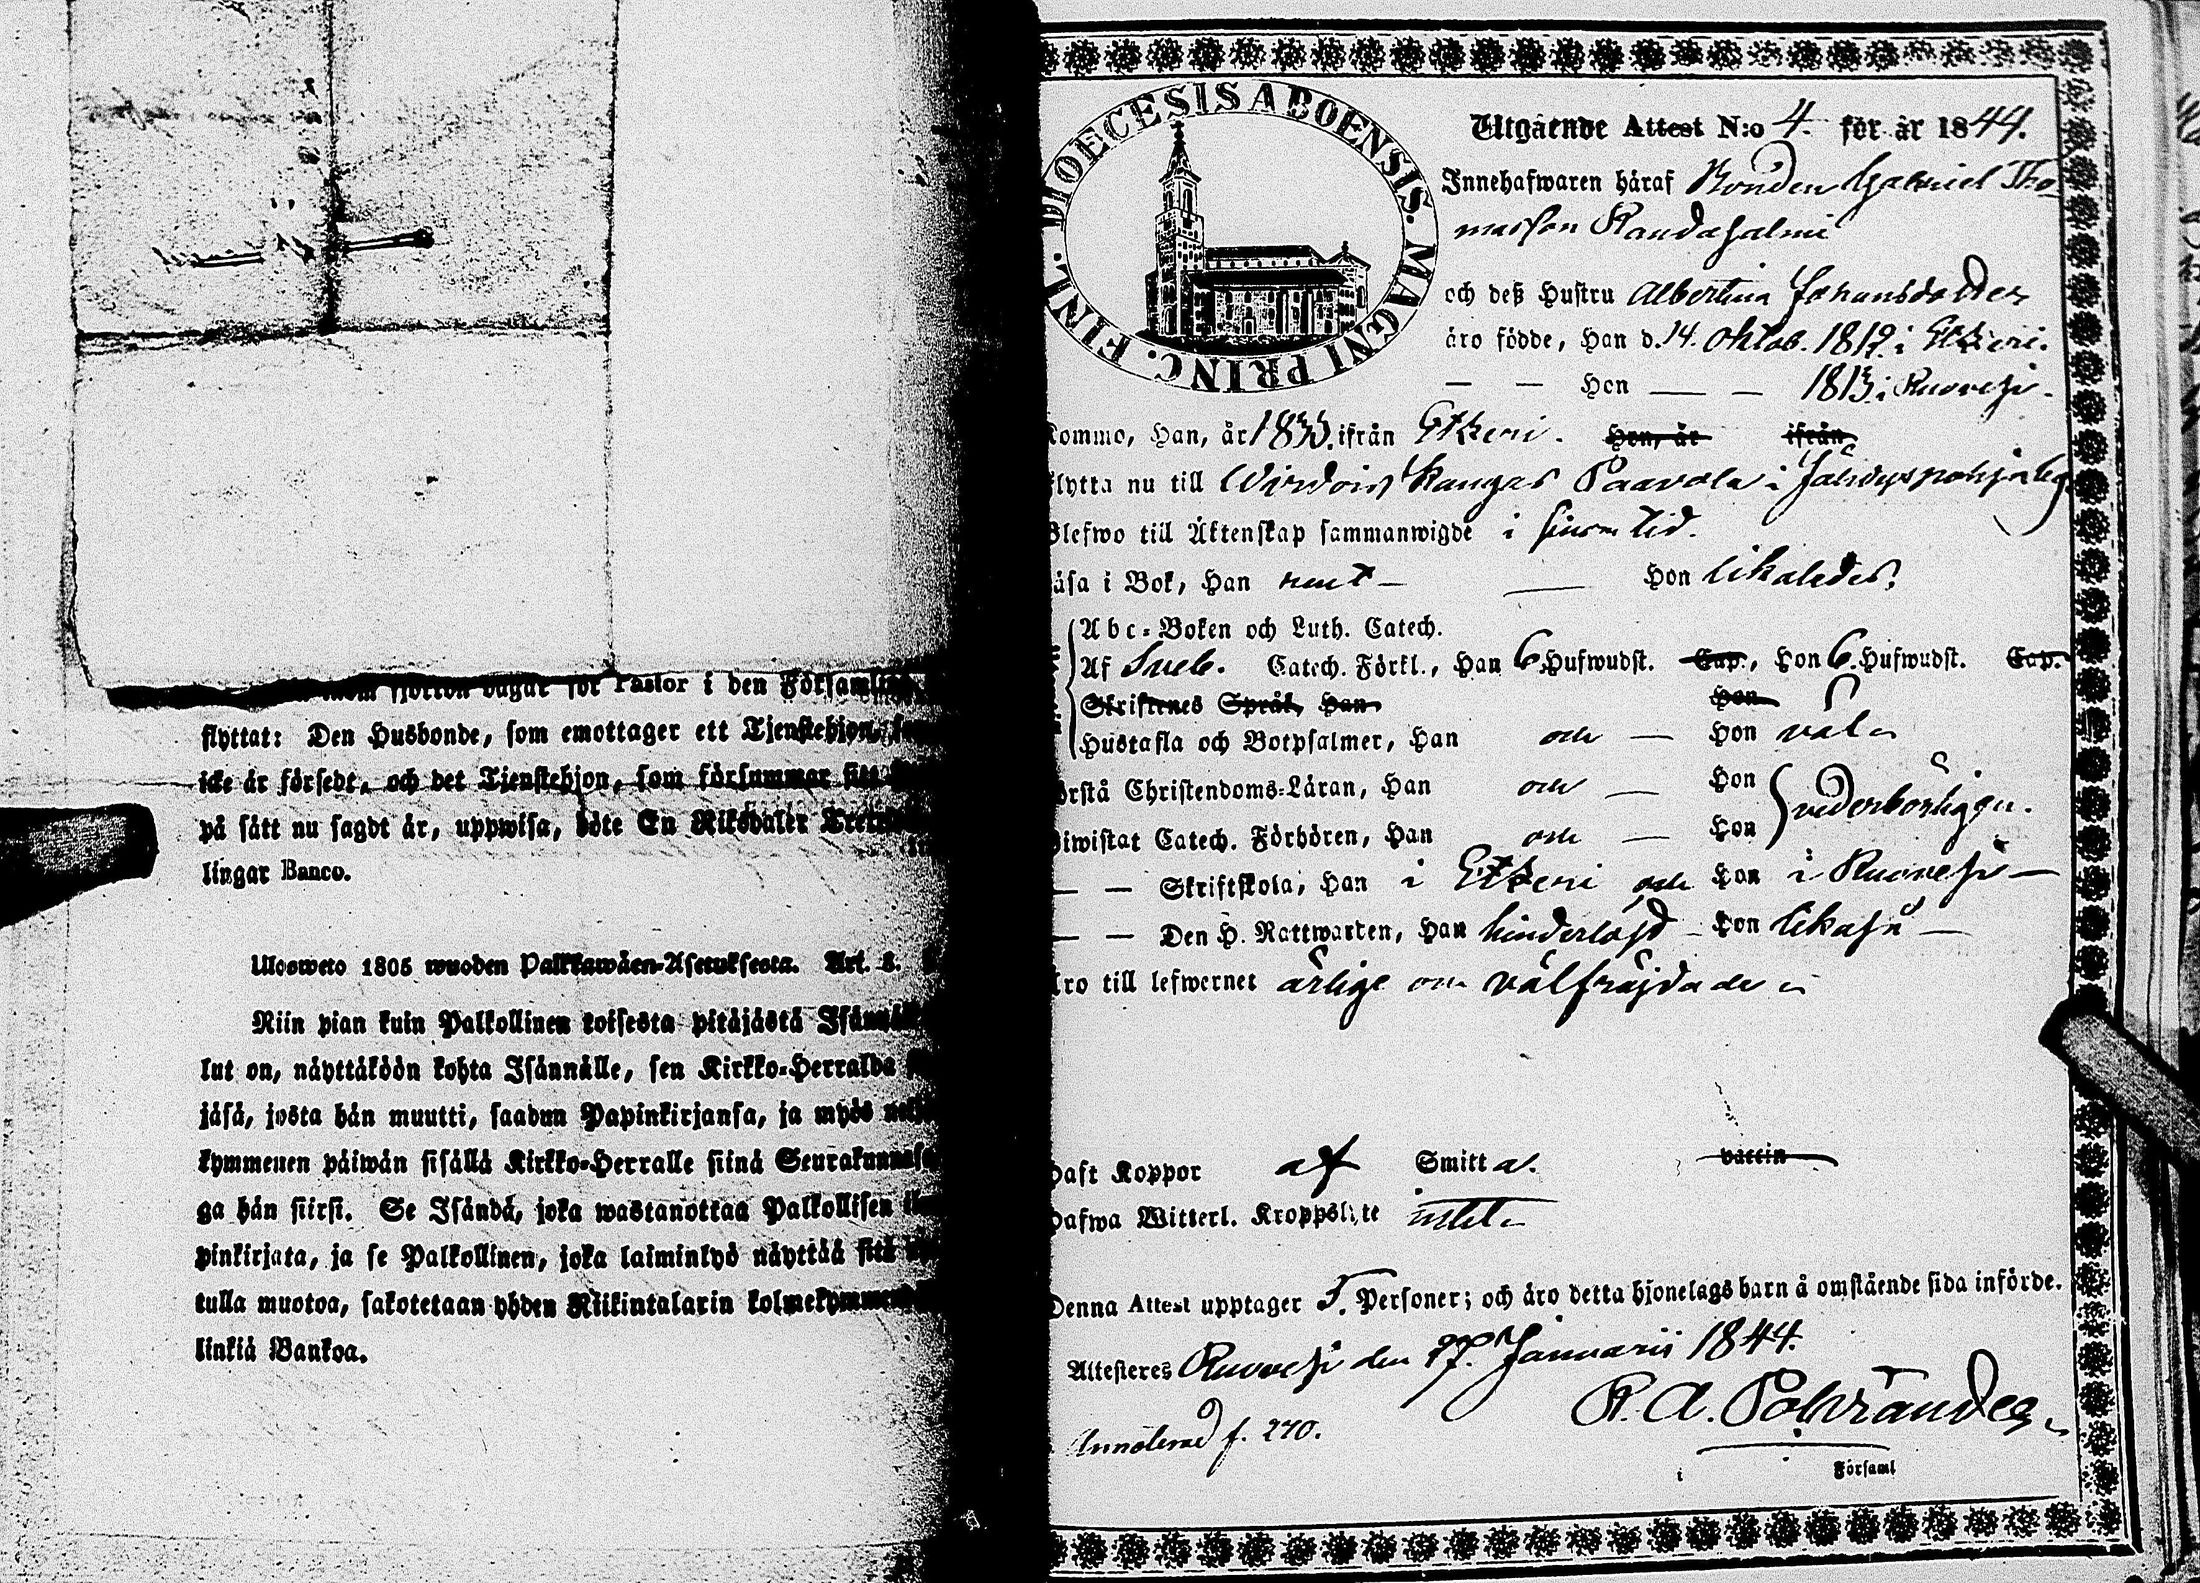 fjorton dagar för Pastor i den Församling,
flyttat: Den Husbonde, som emottager ett Tjenstehjon,
icke är försedt, och det Tjenstehjon, som försummar sitt
på sätt nu sagdt är, uppwisa, böte En Riksdaler
lingar Banco.
Ulosweto 1805 wuoden Palkkawäen-Asetuksesta. Art. 8.
Niin pian kuin Palkollinen toisesta pitäjästä
lut on, näyttäköön kohta Isännälle, sen Kirkko-Herralda
jäsä, josta hän muutti, saadun Papinkirjansa, ja myös
kymmenen päiwän sisällä Kirkko-Herralle siinä
ga hän siirsi. Se Isändä, joka wastanottaa Palkollisen
pinkirjata, ja se Palkollinen, joka laiminlyö näyttää sitä
tulla muotoa, sakotetaan yhden Riikintalarin
linkiä Bankoa.
DIOECESIS ABOENSIS. MAGNI PRINC. FINL.
Utgående Attest N:o 4. för år 1844.
Innehafwaren häraf Bonden Gabriel Tho-
masson Raudasalmi
och deß Hustru Albertina Johansdotter
äro födde, Han d. 14. Oktob. 1812 i Etseri.
— — Hon — — 1813 i Ruovesi.
Kommo, Han, år 1833. ifrån Etseri. Hon, år ifrån
flytta nu till Wirdois Kangas Paavola i Jähdyspohja by
Blefwo till Äktenskap sammanwigde i sinom tid.
läsa i Bok, Han rent — — Hon likaledes.
Abc-Boken och Luth. Catech.
Af Sveb. Catech. Förkl., Han 6 Hufwudst. Cap., Hon 6. Hufwudst. Cap.
Skriftenes Språk, Han Hon
Hustafla och Botpsalmer, Han och — Hon väl
förstå Christendoms-Läran, Han och — Hon
biwistat Catech. Förhören, Han och — Hon vederbörligen.
— — Skriftskola, Han i Etseri och Hon i Ruovesi —
— — Den H. Nattwarden, Han hinderlöst — Hon likaså —
Äro till lefwernet ärlige och välfräjdade
haft Koppor af Smitta. vaccin
hafwa Witterl. Kroppslyte intet
Denna Attest upptager 5. Personer; och äro detta hjonelags barn å omstående sida införde.
Attesteres Ruovesi den 17. Januarii 1844.
Annoterad f. 270.
Församl